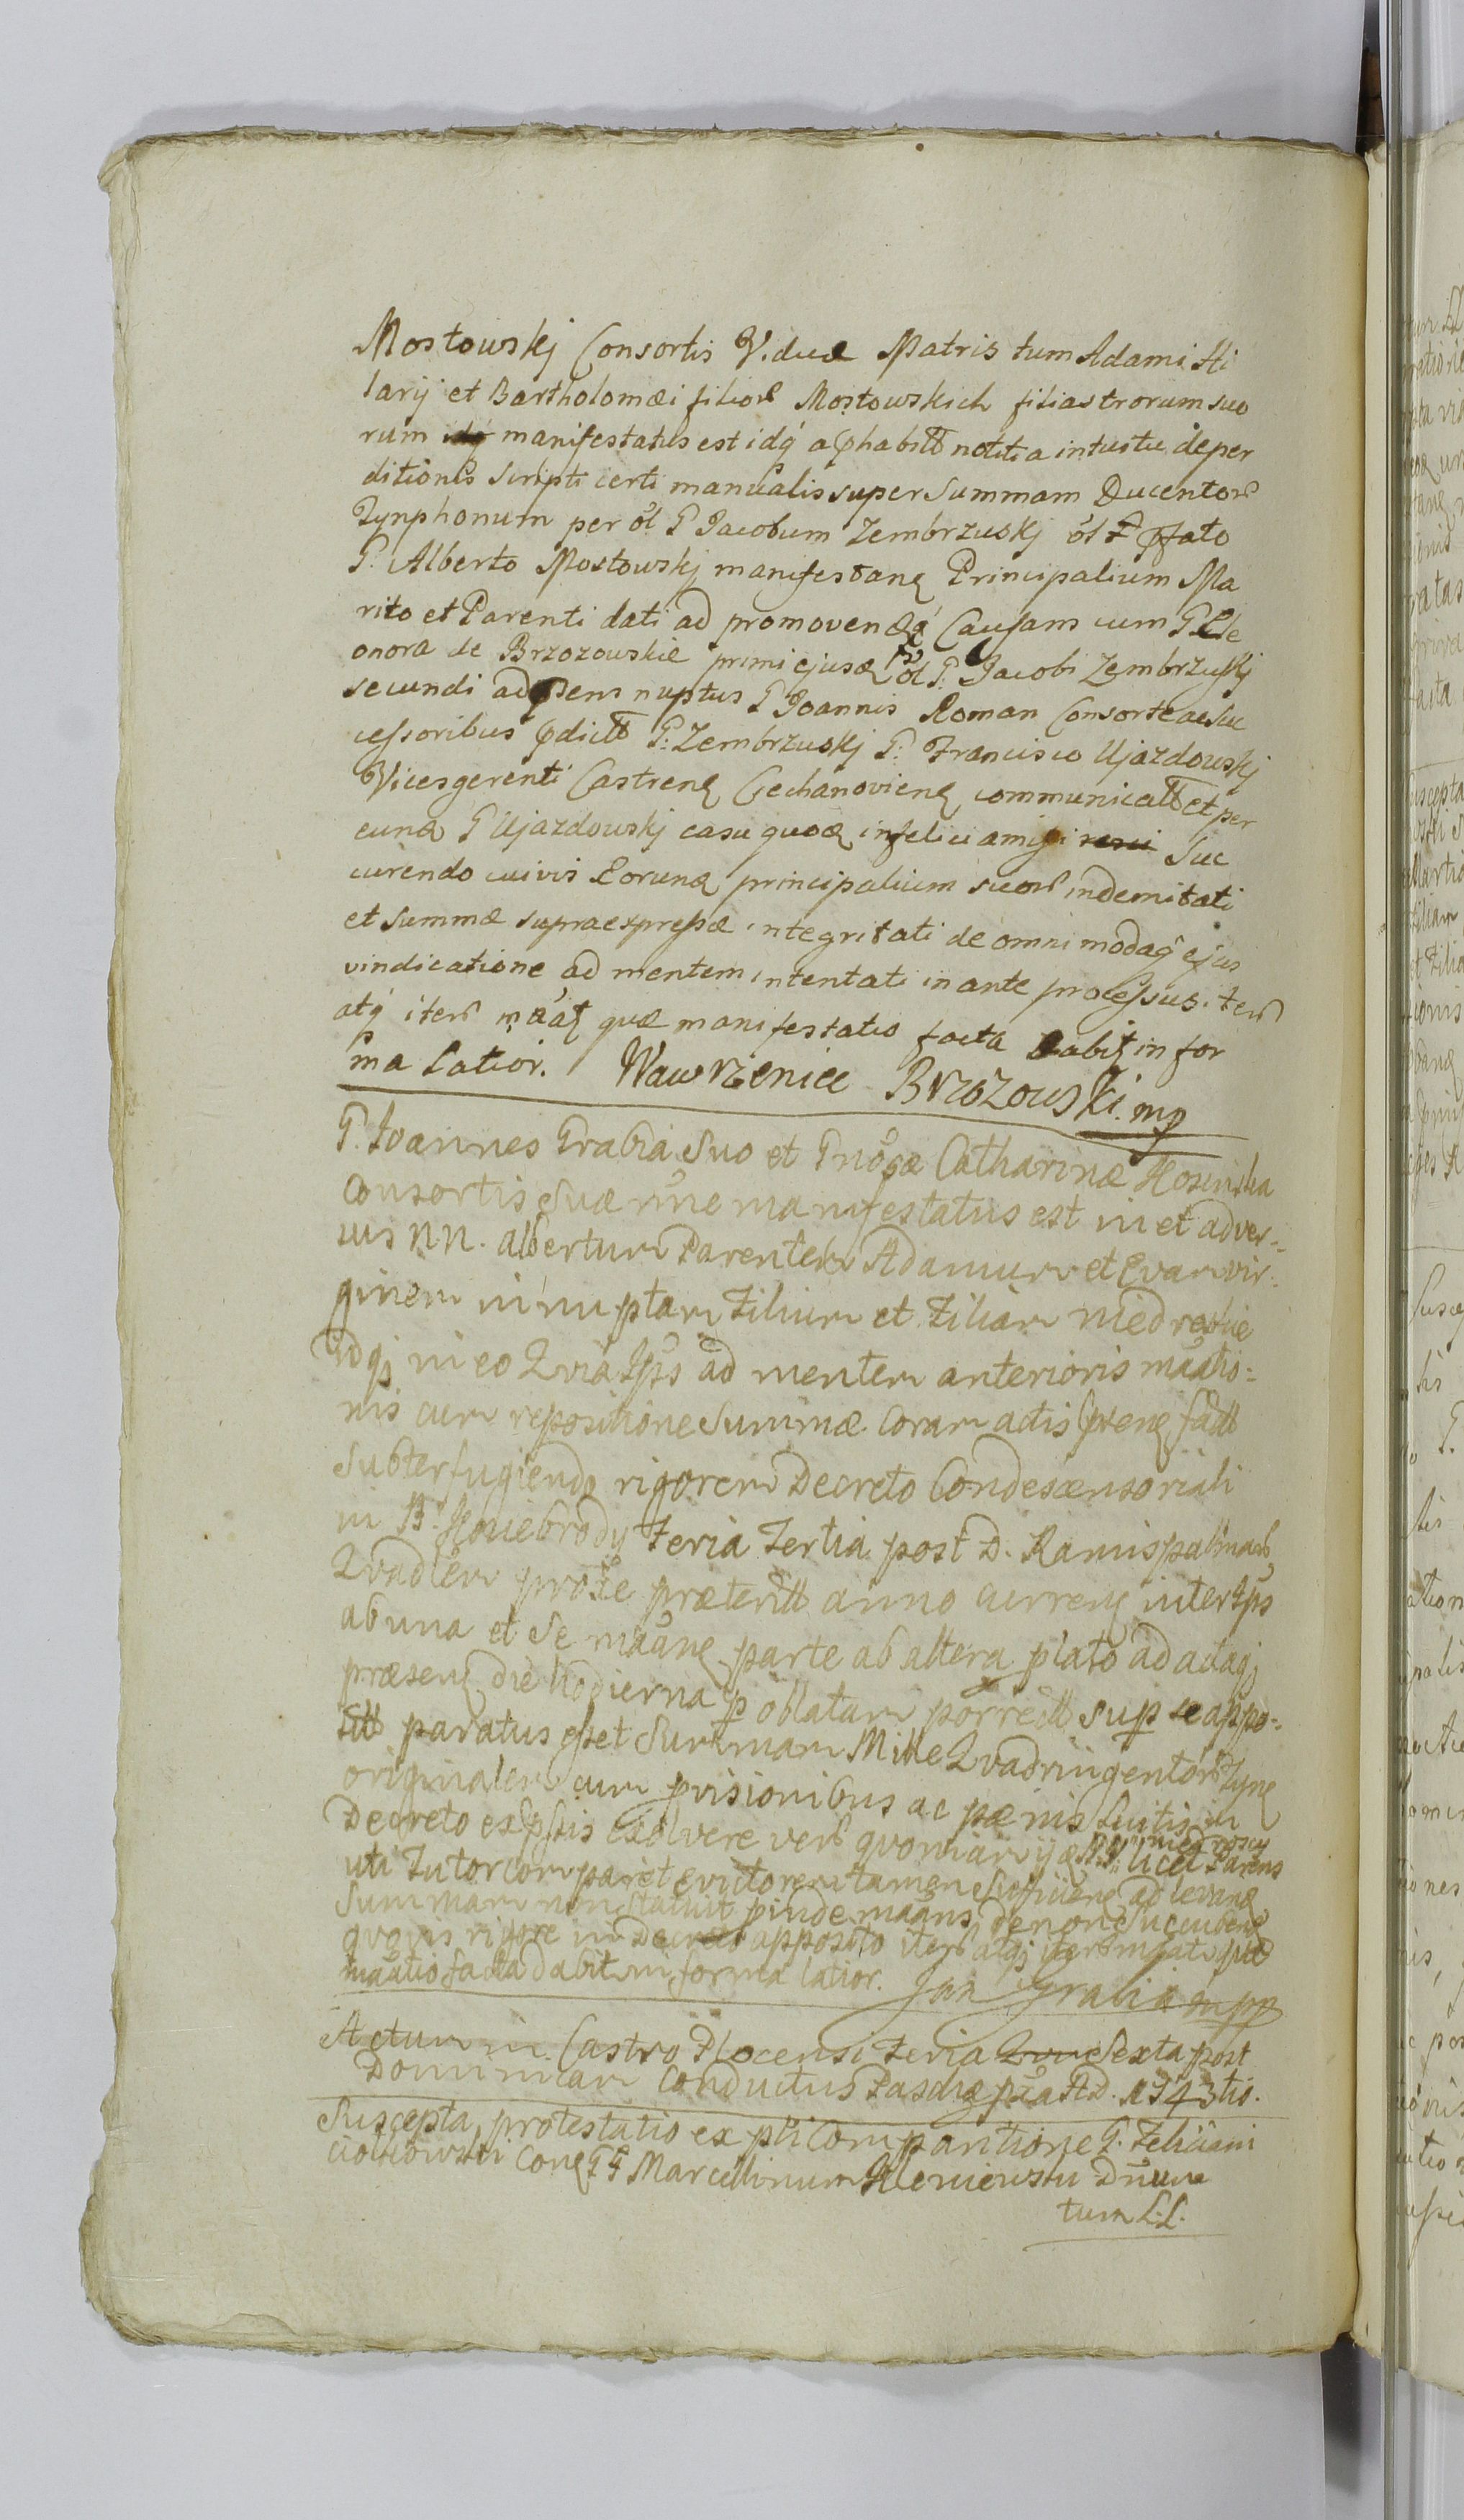 Mostowskj Consortis Viduæ Matris tum Adami Hi
larij et Bartholomæi filior Mostowskich filiastrorum suo
rum idq manifestatus est idq a habitt notitia intuitu deper
ditionis scripti certi manualis super Summam Ducentor
Tynphonum per ol G Jacobum Zembrzuskj ol fato
G. Alberto Mostowskj manifestanę Principalium Ma
rito et Parenti dati ad promovendą Causam cum G Ele
onora de Brzozowskie primi ejusdę ol G: Jacobi Zembrzuskj
secundi ad sens nuptus G Joannis Roman Consorte ac Suc
cessoribus dictt G: Zembrzuskj G: Francisco Ujazdowskj
Vicesgerenti Castrenę Ciechanovienę communicatt et per
eund G Ujazdowskj casu quodę infelici amissi Suc
currendo cuivis Eorundę principalium suor indemnitati
et Summæ supraexpressæ integritati de omni modaq ejus
vindicatione ad mentem intentati in ante processus iter
atq iter quæ manifestatio facta Dabit in for
ma Latior. Wawrzeniec Brzozowski mp
G. Joannes Grabia Suo et Gnosæ Catharinæ Kosinska
Consortis Suæ nne manifestatus est in et adver=
sus NN. Albertum Parentem Adamum et Evam vir=
ginem innuptam Filium et Filiam Niedreskie
Idqj in eo Qvia Ips ad mentem anterioris maatio=
nis cum repositione Summæ Coram actis Cptenę fatt
Subterfugiendo rigorem Decreto Condescensoriali
in Bs Nowebrody Feria Tertia post D. Ramis palmar
Qvadlem proxe præteritt anno currenę inter Ips
ab una et Se maanę parte ab altera plato ad actaqj
præsenę die hodierna p oblatam porrectt sup se appo=
sitt paratus esset Summam Mille Qvadringentor Tynę
originalem cum provisionibus ac pænis Luitis in
Decreto exssis exolvere ver qvoniam ijd NN Niedroscy licet Parens
uti Tutor comparet evictorem tamen Sufficienę ad levandę
Summam non statuit pinde maans de non Succudendę
qvovis rigore in Decreto apposito iter atqj iter mfat qvæ
maatio facta dabit in forma latior. Jan Grabia mpp
Actum in Castro Plocensi Feria Sexta post
Dominicam Conductus Paschæ pxa AD. 1743tio.
Suscepta protestatio ex pti Comparitione G. Feliciani
Ciolkowski Conę GG Marcellinum Kleniewski Dnum
tum L.L.